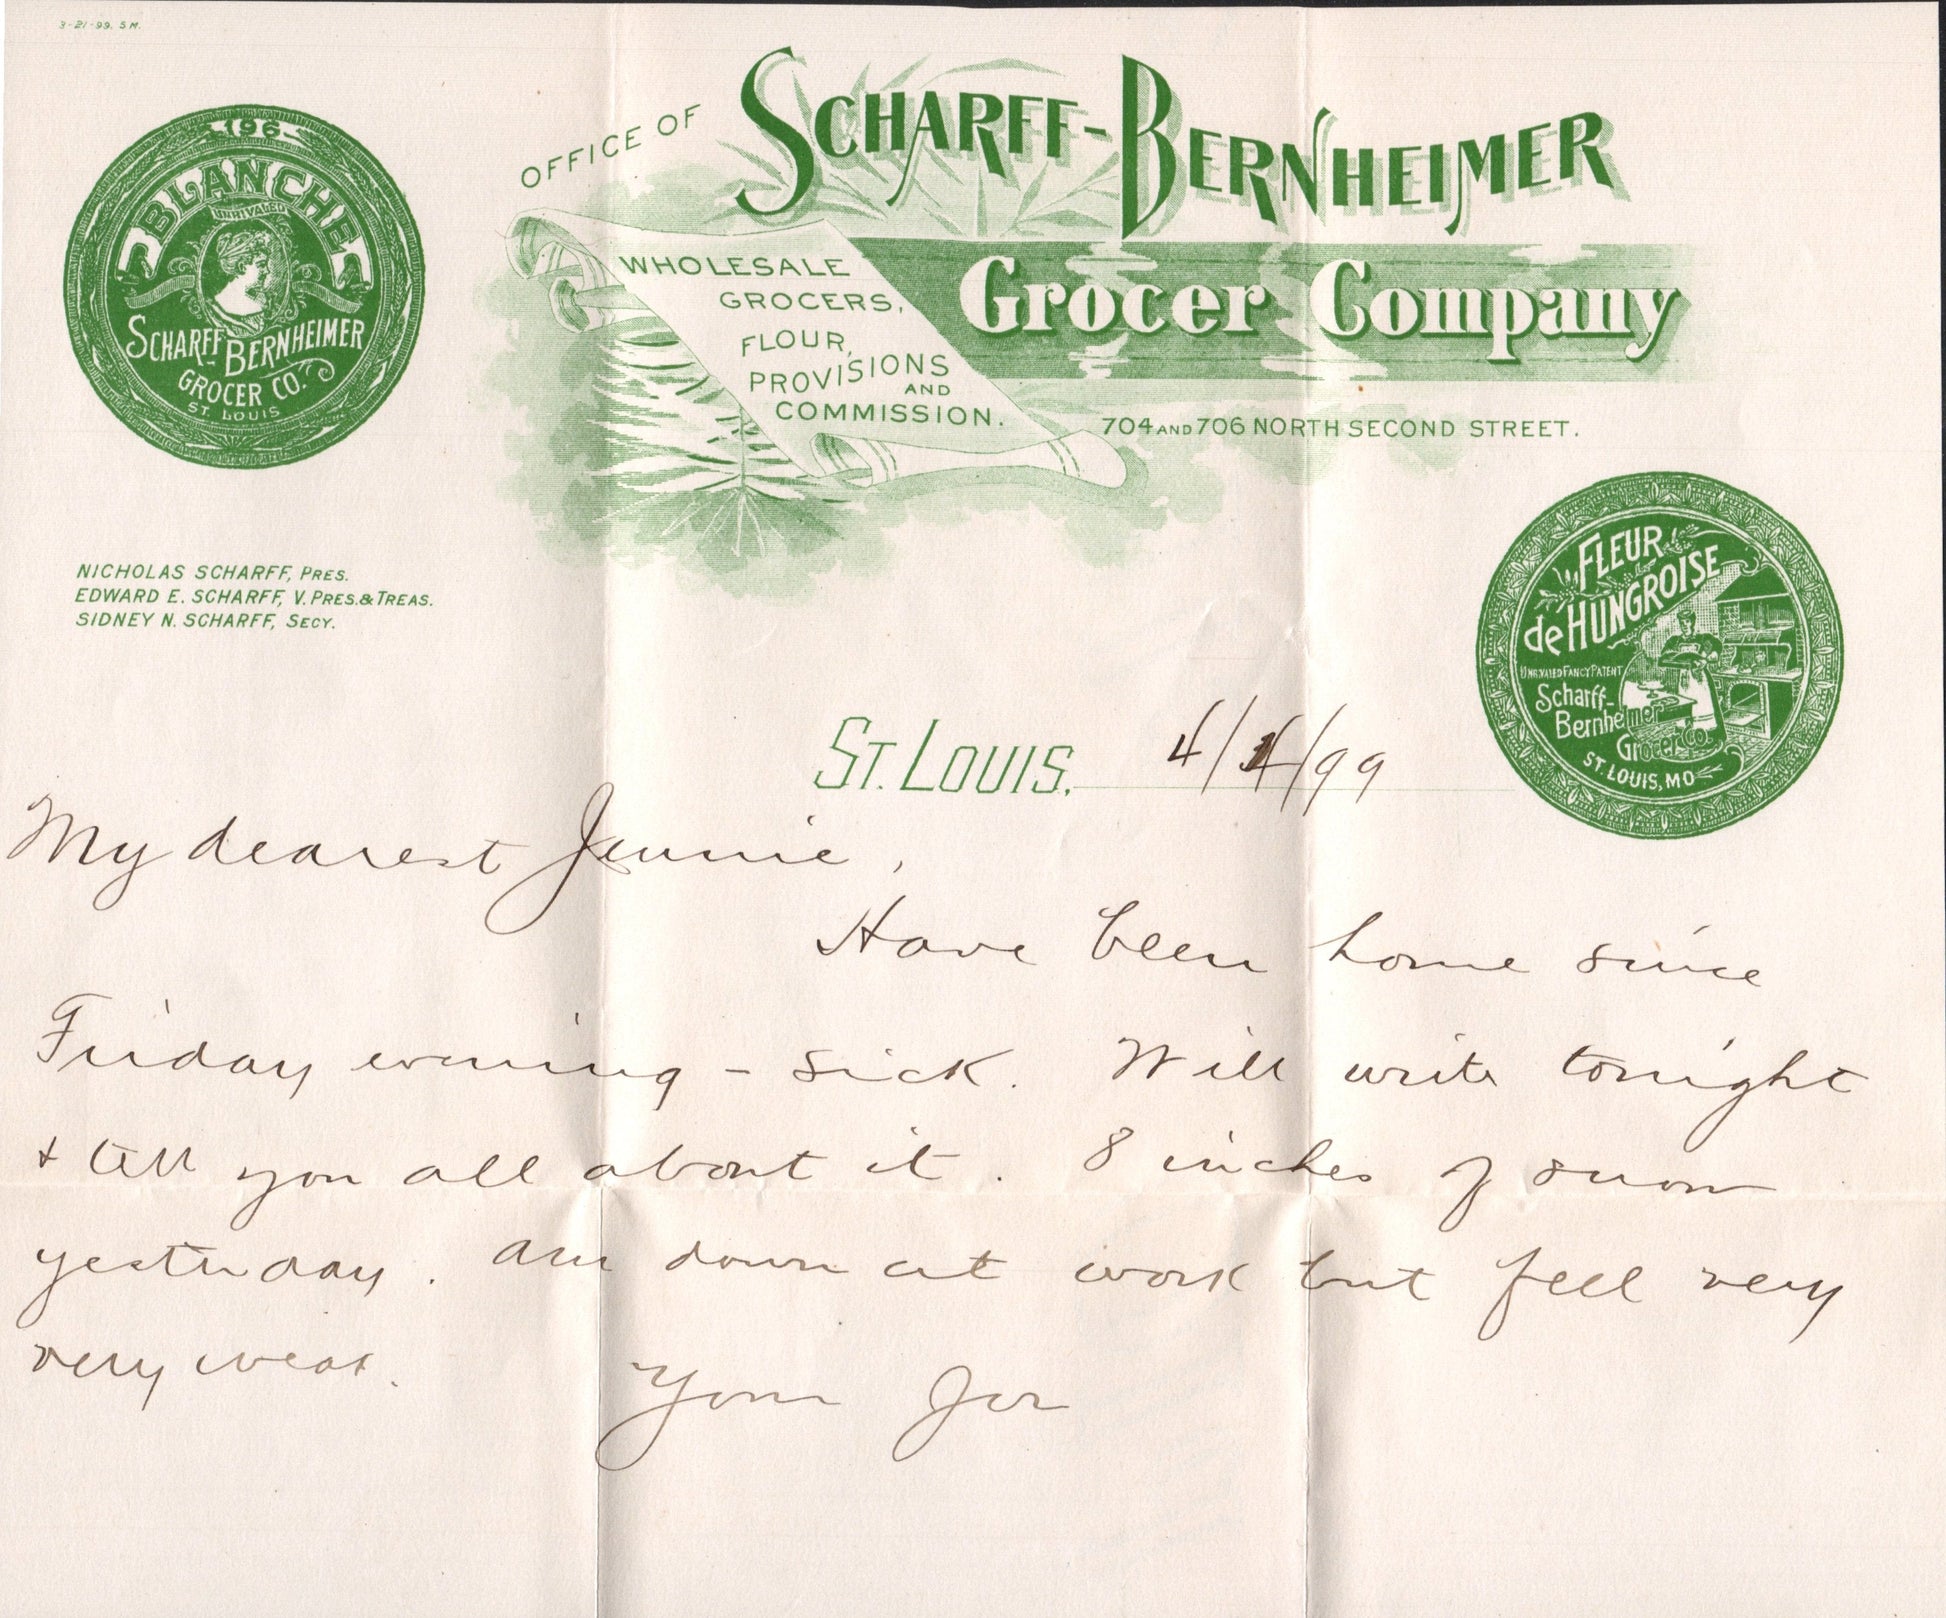 3-21-99. 5 M.
OFFICE OF
SCHARFF-BERNHEIMER
Grocer Company
WHOLESALE
GROCERS,
FLOUR,
PROVISIONS
AND
COMMISSION.
704 AND 706 NORTH SECOND STREET.
196
BLANCHE
UNRIVALED
SCHARFF-BERNHEIMER
GROCER CO.
ST. LOUIS
NICHOLAS SCHARFF, PRES.
EDWARD E. SCHARFF, V. PRES. & TREAS.
SIDNEY N. SCHARFF, SECY.
FLEUR
de HUNGROISE
UNRIVALED FANCY PATENT
Scharff-
Bernheimer
Grocer Co.
ST. LOUIS, MO
ST. LOUIS, 4/ /99
My dearest Jennie,
Have been home since
Friday evening - sick. Will write tonight
+ tell you all about it. 8 inches of snow
yesterday. Am down at work but feel very
very weak.
Your Joe